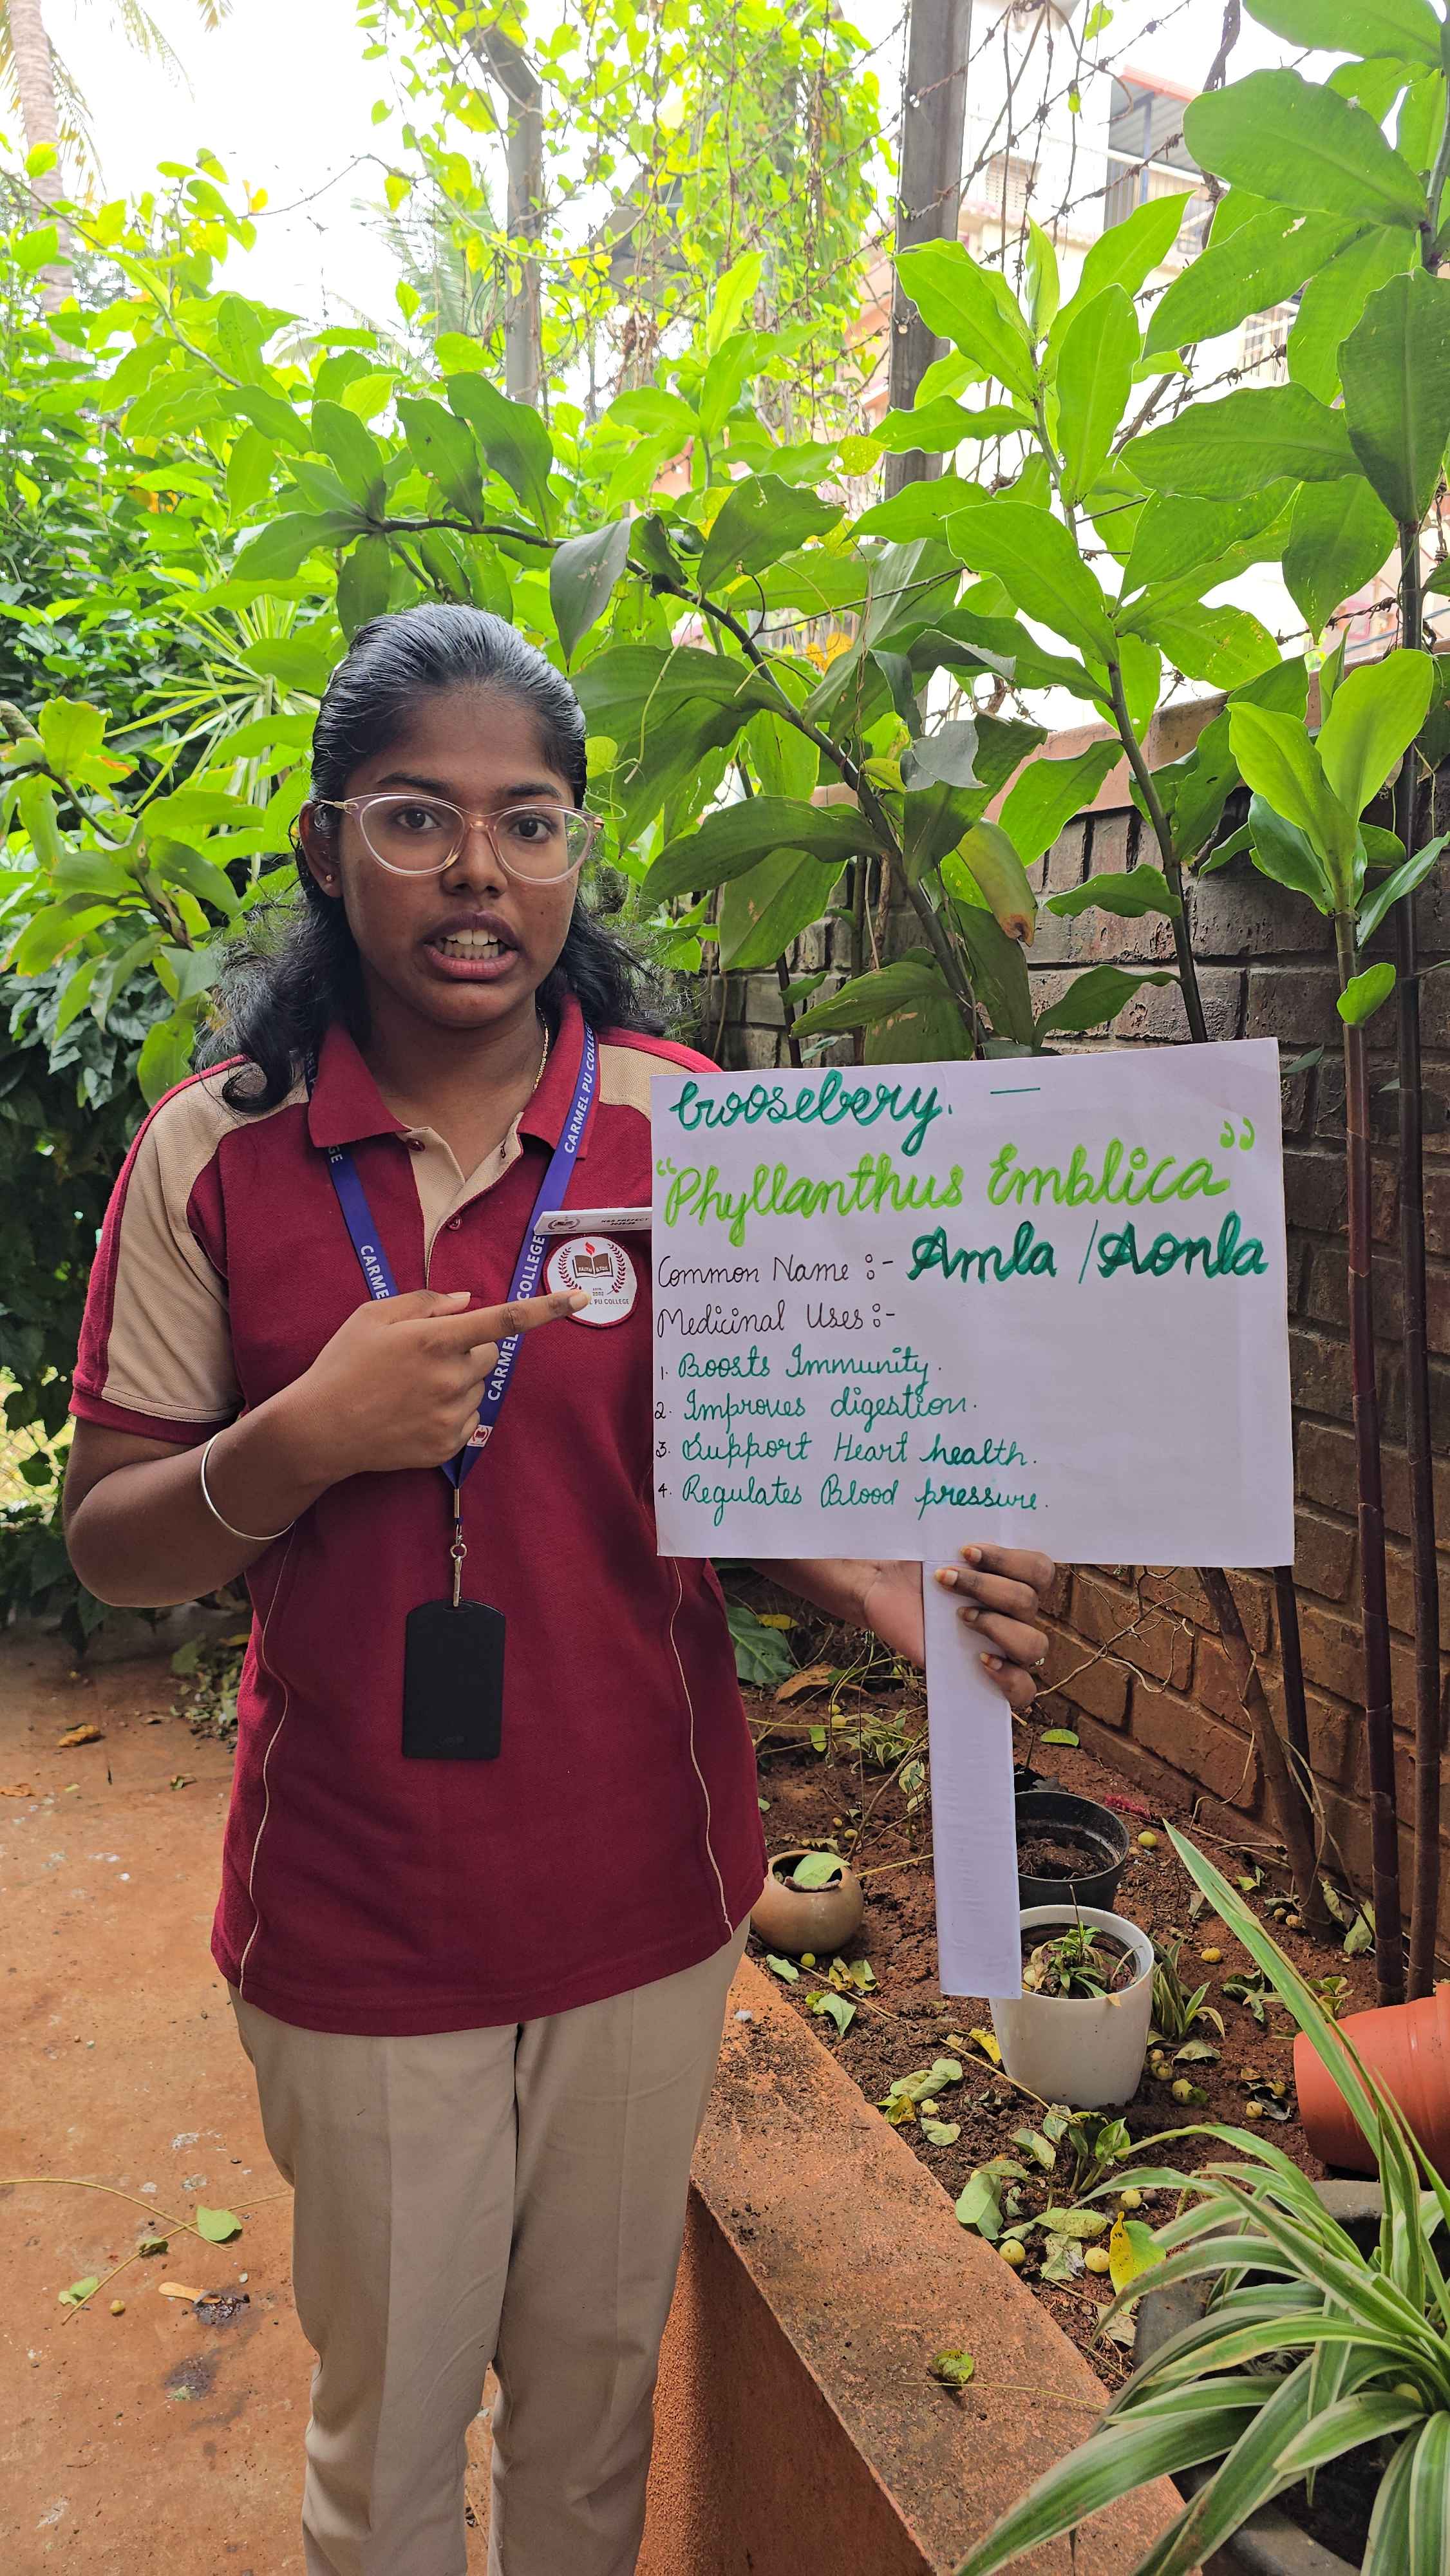 Goosebery. —
"Phyllanthus Emblica"
Common Name :- Amla / Aonla
Medicinal Uses :-
1. Boosts Immunity.
2. Improves digestion.
3. Support Heart health.
4. Regulates Blood pressure.
CARMEL PU COLLEGE
GE
CARMEL
COLLEGE
CARMEL
PREFECT
FAITH
PU COLLEGE